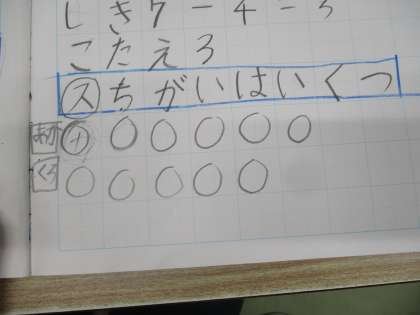 しき7-4=3
こたえ3
スちがいはいくつ
あか
くろ